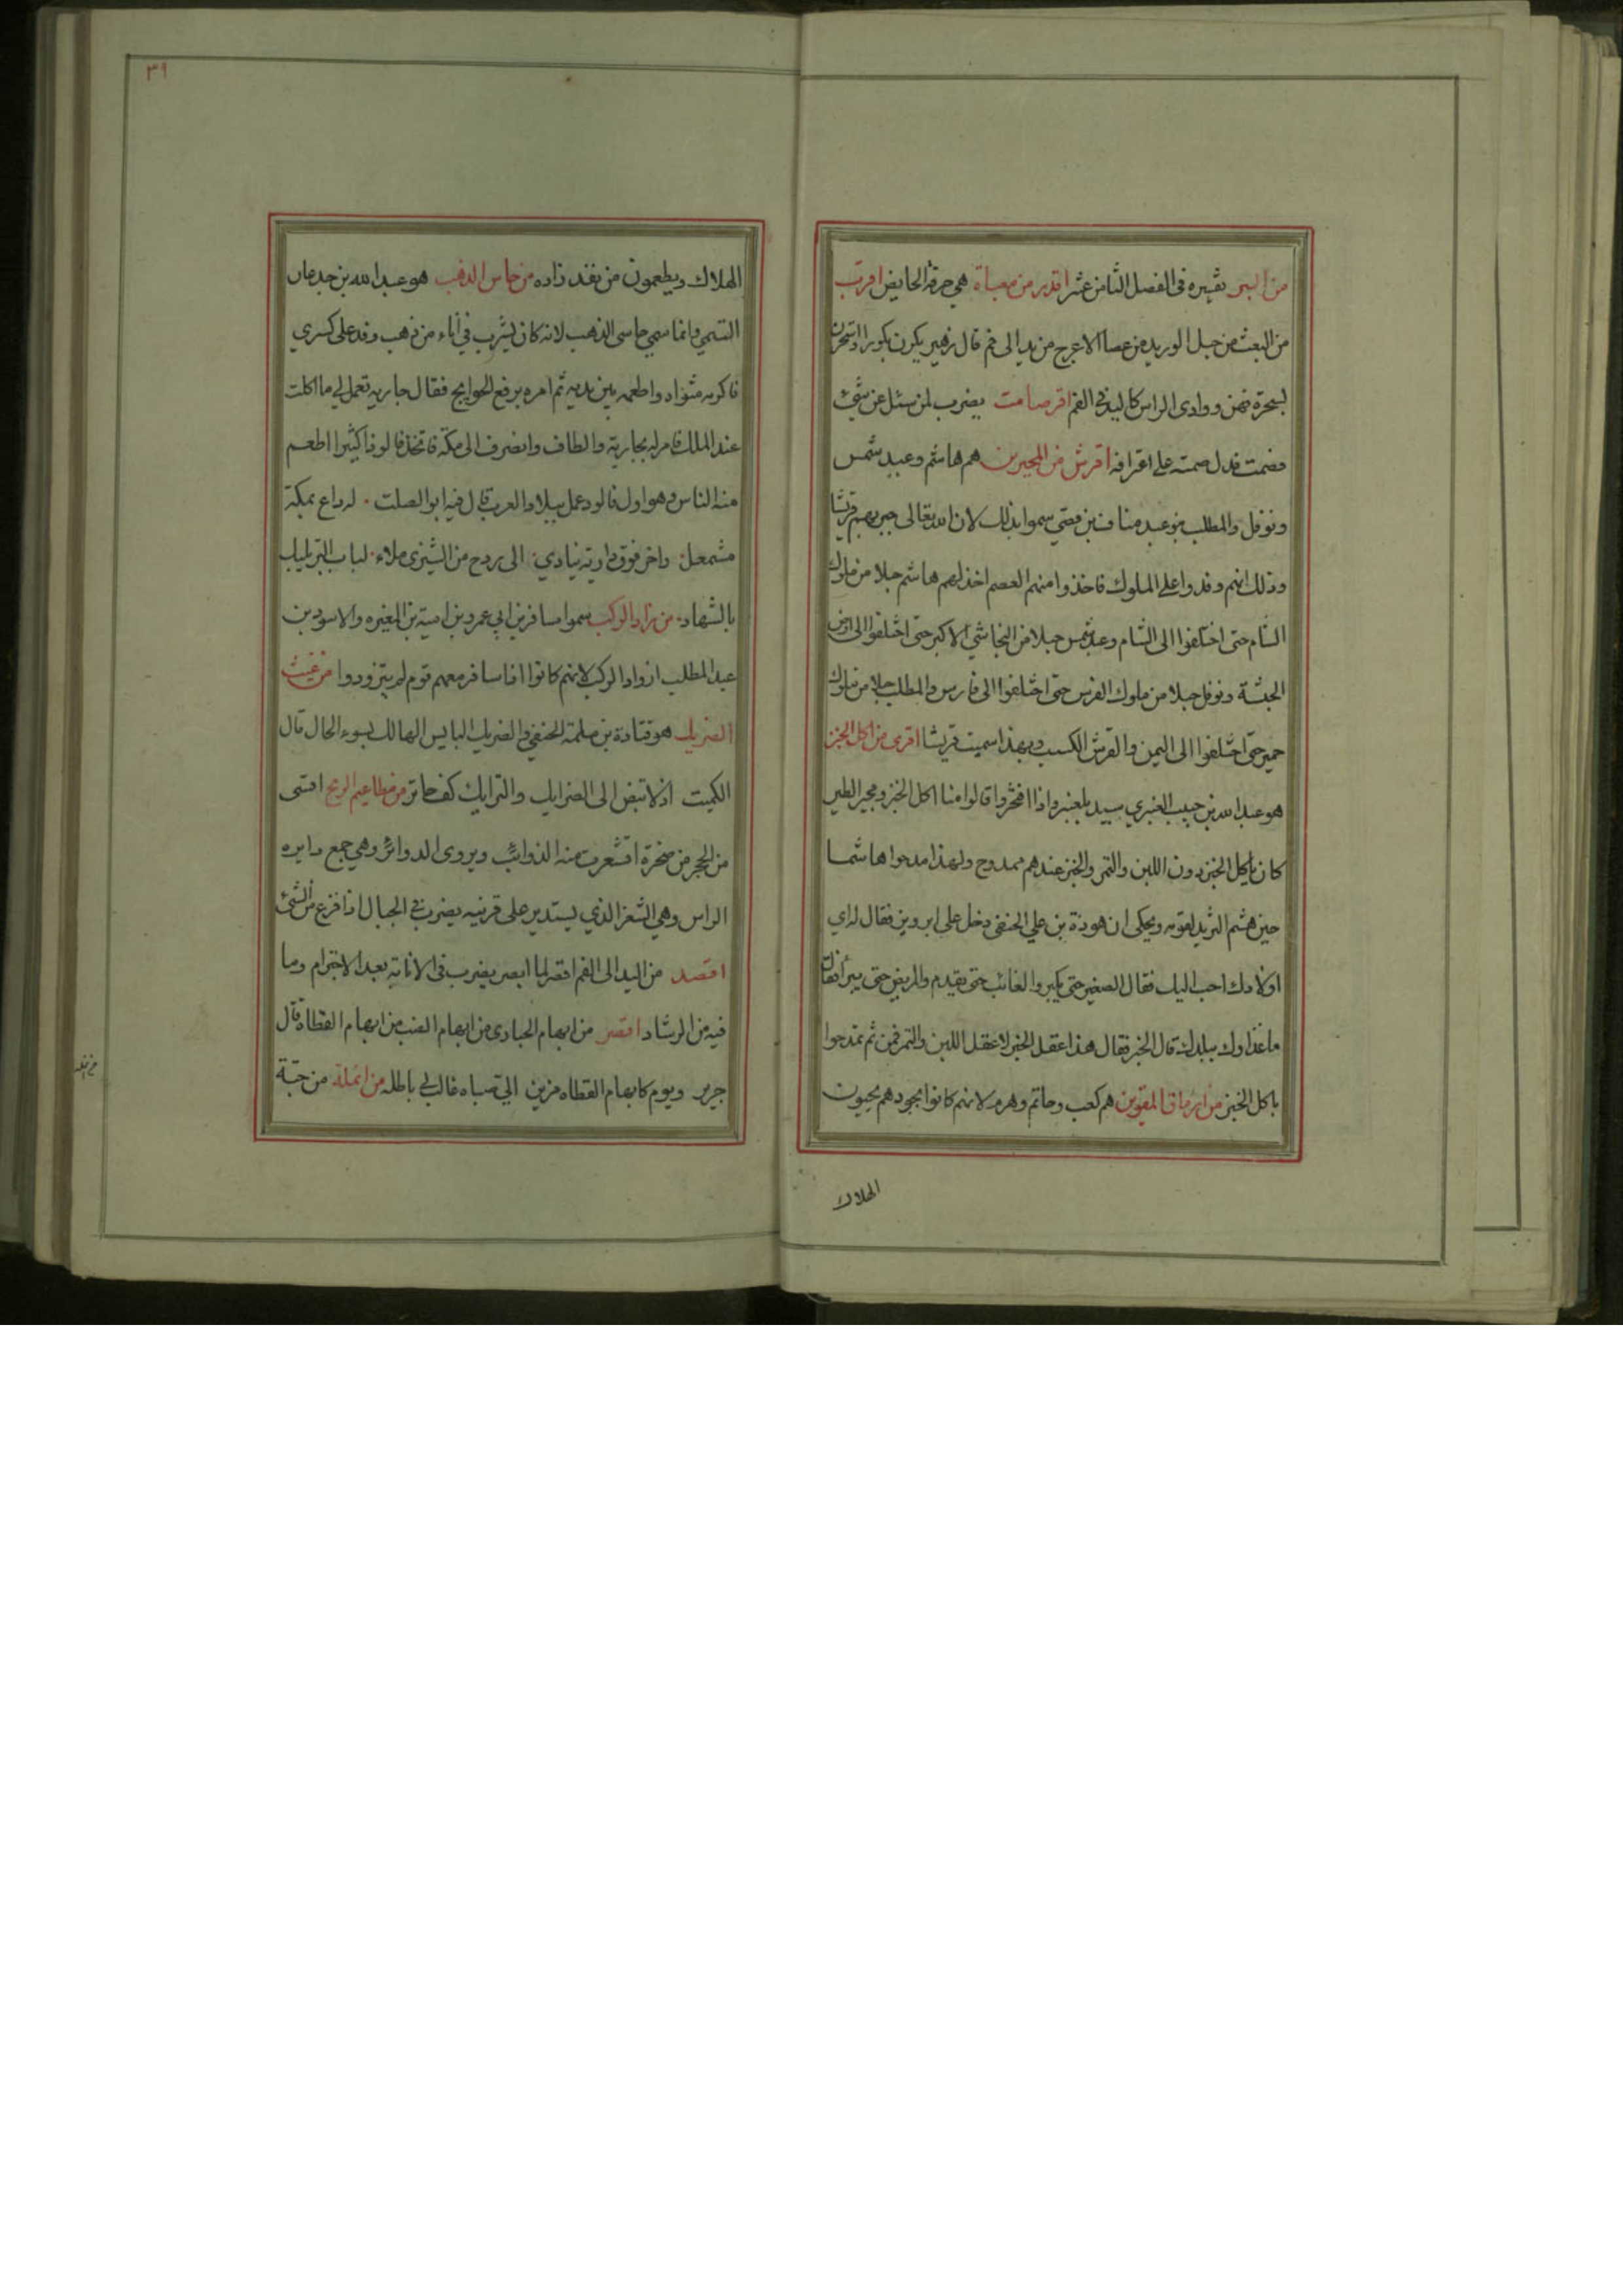 من البير تفسيره فى الفصل الثامن عشر اقذر من معباة هي خرقة الحايض اقرب
من البعث من حبل الوريد من عصا الاعرج من يد الى فم قال زهير بكرن بكورا واستحرن
بسحرة فهن ووادى الراس كاليد فى الفم اقر صامت يضرب لمن سئل عن شئ
فصمت فدل صمته على اقرافه اقرش من المجيرين هم هاشم وعبد شمس
ونوفل والمطلب بنو عبد مناف بن قصي سموا بذلك لان الله تعالى جبر بهم قريشا
وذلك انهم وفدوا على الملوك فاخذوا منهم العصم اخذ لهم هاشم حبلا من ملوك
الشام حتى اختلفوا الى الشام وعبد شمس حبلا من النجاشي الاكبر حتى اختلفوا الى ارض
الحبشة ونوفل حبلا من ملوك الفرس حتى اختلفوا الى فارس والمطلب حبلا من ملوك
حمير حتى اختلفوا الى اليمن والقرش الكسب وبهذا سميت قريشا اقرى من اكل الخبز
هو عبد الله بن حبيب العنبري سيد بلعنبر واذا افتخروا قالوا منا اكل الخبز ومجير الطير
كان ياكل الخبز دون اللبن والتمر والخبز عندهم ممدوح ولهذا مدحوا هاشما
حين هشم الثريد لقومه ويحكى ان هوذة بن علي الحنفي دخل على ابرويز فقال له اي
اولادك احب اليك فقال الصغير حتى يكبر والغائب حتى يقدم والمريض حتى يبرأ فقال
ما غذاوك ببلدك قال الخبز فقال هذا عقل الخبز لا عقل اللبن والتمر فمن ثم تمدحوا
باكل الخبز من ارماق المقوين هم كعب وحاتم وهرم لانهم كانوا بجودهم يحيون
الهلاك
٣١
الهلاك ويطعمون من نفد زاده من حاس الذهب هو عبد الله بن جدعان
التيمي وانما سمي حاسى الذهب لانه كان يشرب في اناء من ذهب وفد على كسري
فاكرم مثواه واطعمه بين يديه ثم امره برفع الحوايج فقال جارية تعمل لي ما اكلت
عند الملك فامر له بجارية والطاف وانصرف الى مكة فاتخذ فالوذا كثيرا اطعم
منه الناس وهو اول فالوذ عمل ببلاد العرب قال فيه ابو الصلت . له داع بمكة
مشمعل . واخر فوق دارته ينادي . الى ردح من الشيزى ملاء . لباب البر يلبك
بالشهاد . من زاد الركب سموا مسافر بن ابي عمرو بن امية بن المغيره والاسود بن
عبد المطلب ازواد الركب لانهم كانوا اذا سافر معهم قوم لم يتزودوا من غيث
الضريك هو قتادة بن مسلمة الحنفي والضريك البايس الهالك بسوء الحال قال
الكميت اذ لا تبض الى الضرايك والترايك كف جاتر من مطاعيم الريح اقسى
من الحجر من صخرة اقشعرت منه الذوائب ويروى الدوائر وهي جمع دايره
الراس وهي الشعر الذي يستدير على قرنيه يضرب فى الجبال اذا فزع من الشئ
اقصد من اليد الى الفم اقصر لما ابصر يضرب فى الانابة بعد الاجترام وما
فيه من الرشاد اقصر من ابهام الحبارى من ابهام الضب من ابهام القطاة قال
جرير ويوم كابهام القطاه مزين الي صباه غالب لي باطله من انملة من حبة